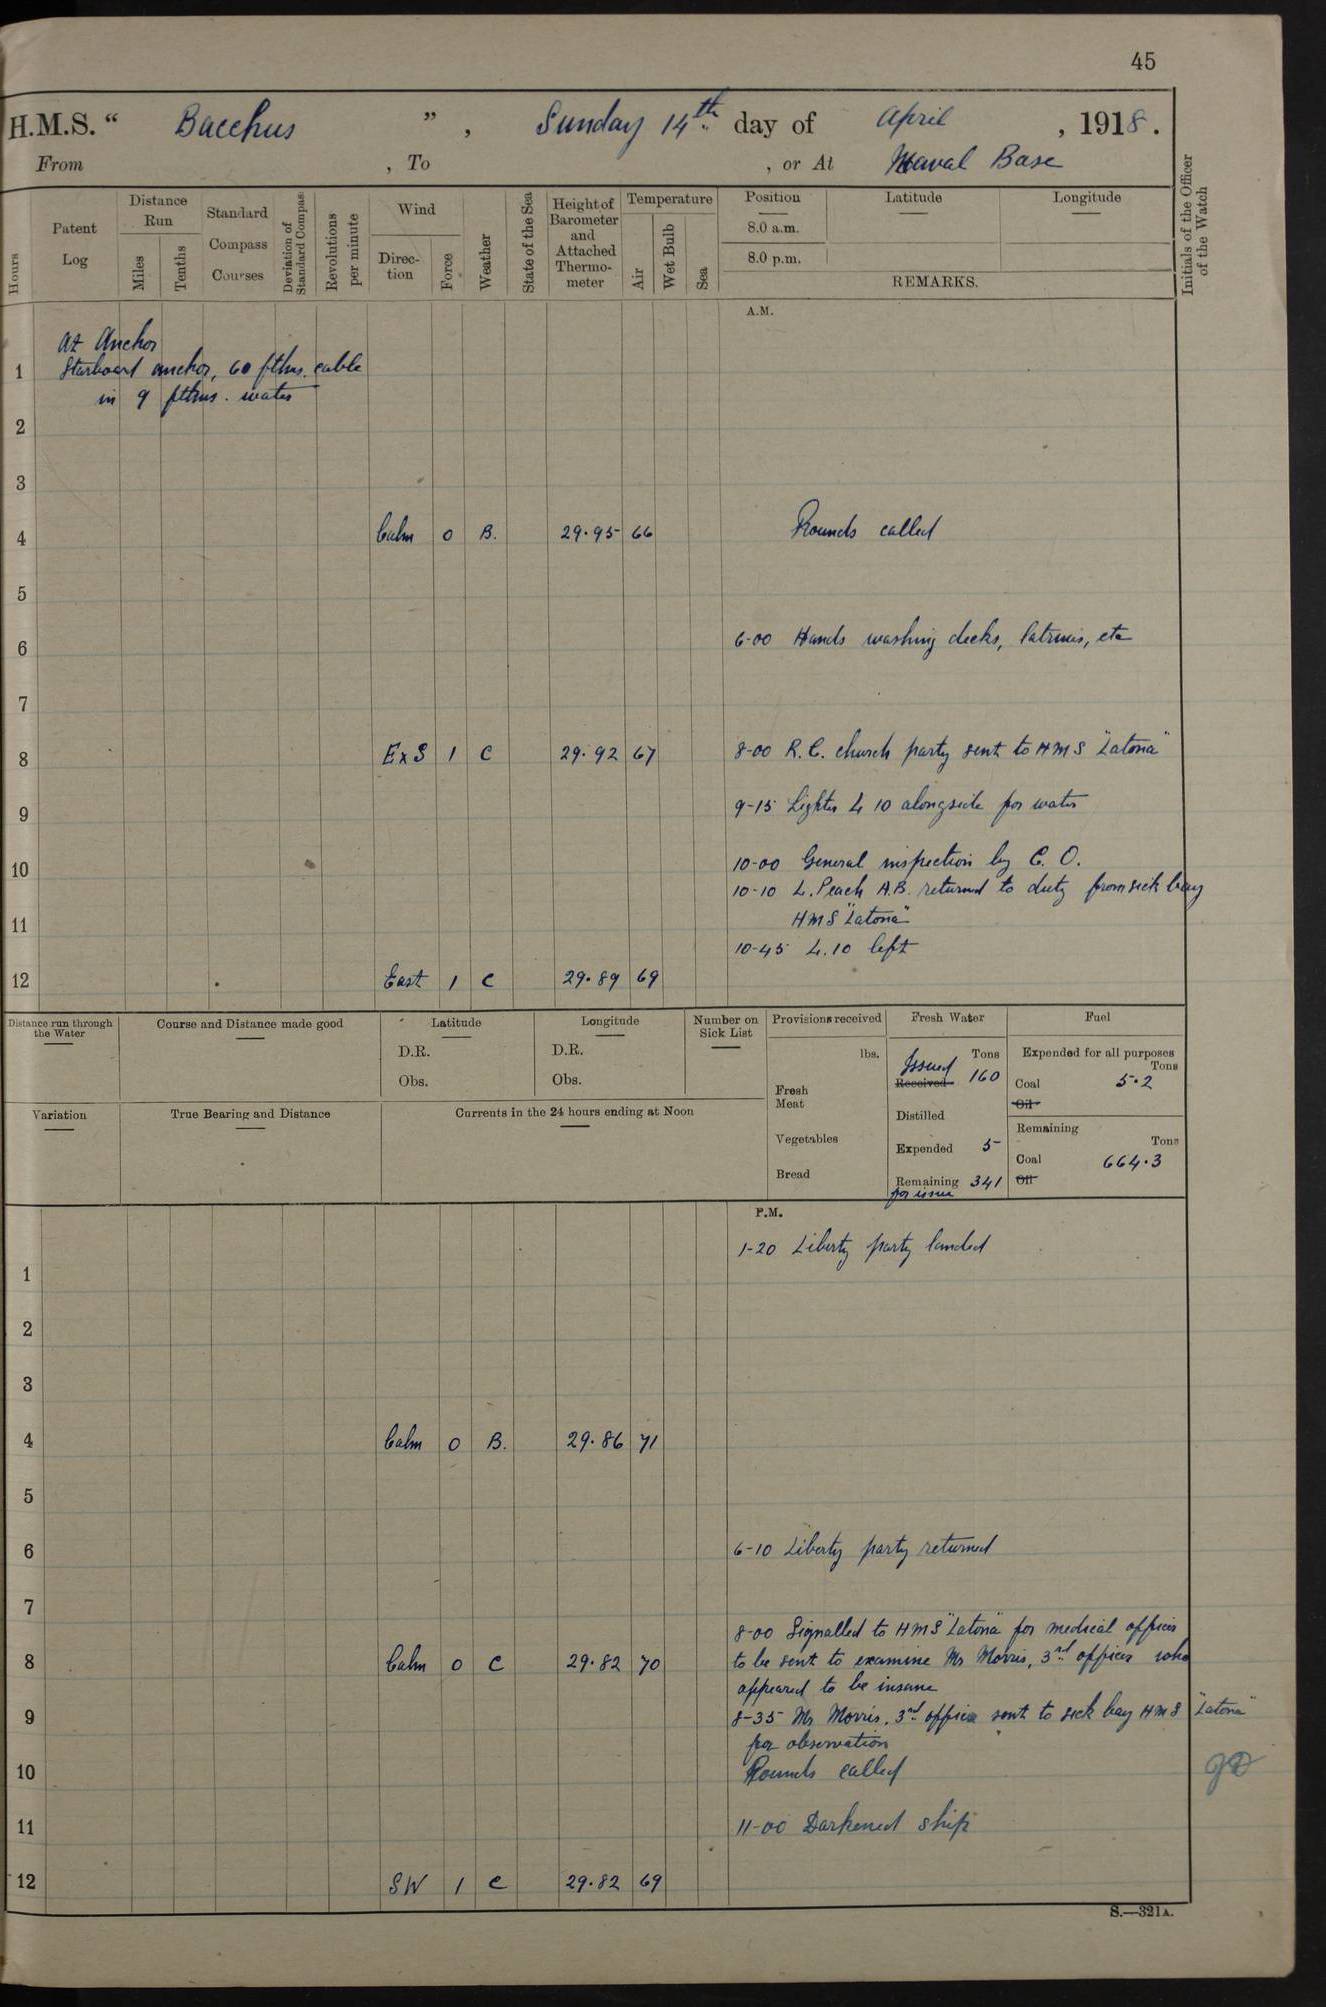 45
H.M.S. “ Bacchus ” , Sunday 14th day of April , 1918.
From , To , or At Naval Base
Hours
Patent Log
Distance Run
Miles
Tenths
Standard Compass Courses
Deviation of Standard Compass
Revolutions per minute
Wind
Direction
Force
Weather
State of the Sea
Height of Barometer and Attached Thermometer
Temperature
Air
Wet Bulb
Sea
Position
8.0 a.m.
8.0 p.m.
Latitude
Longitude
REMARKS.
Initials of the Officer of the Watch
A.M.
At Anchor
1 Starboard anchor, 60 fthms. cable
in 9 fthms. water
2
3
4 Calm 0 B. 29.95 66 Rounds called
5
6 6-00 Hands washing decks, latrines, etc
7
8 ExS 1 C 29.92 67 8-00 R.C. church party sent to HMS "Latona"
9 9-15 Lighter L 10 alongside for water
10 10-00 General inspection by C.O.
10-10 L. Peach A.B. returned to duty from sick bay
11 HMS "Latona"
10-45 L.10 left
12 East 1 C 29.89 69
Distance run through the Water
Course and Distance made good
Latitude
D.R.
Obs.
Longitude
D.R.
Obs.
Number on Sick List
Provisions received
lbs.
Fresh Meat
Vegetables
Bread
Fresh Water
Tons
Issued
Received 160
Distilled
Expended 5
Remaining 341
for issue
Fuel
Expended for all purposes
Tons
Coal 5.2
Oil
Remaining
Tons
Coal 664.3
Oil
Variation
True Bearing and Distance
Currents in the 24 hours ending at Noon
P.M.
1-20 Liberty party landed
1
2
3
4 Calm 0 B. 29.86 71
5
6 6-10 Liberty party returned
7
8-00 Signalled to HMS "Latona" for medical officer
8 Calm 0 C 29.82 70 to be sent to examine Mr Morris, 3rd officer who
appeared to be insane
9 8-35 Mr Morris, 3rd officer sent to sick bay HMS "Latona"
for observation
10 Rounds called
11 11-00 Darkened ship
12 SW 1 C 29.82 69
S.—321A.